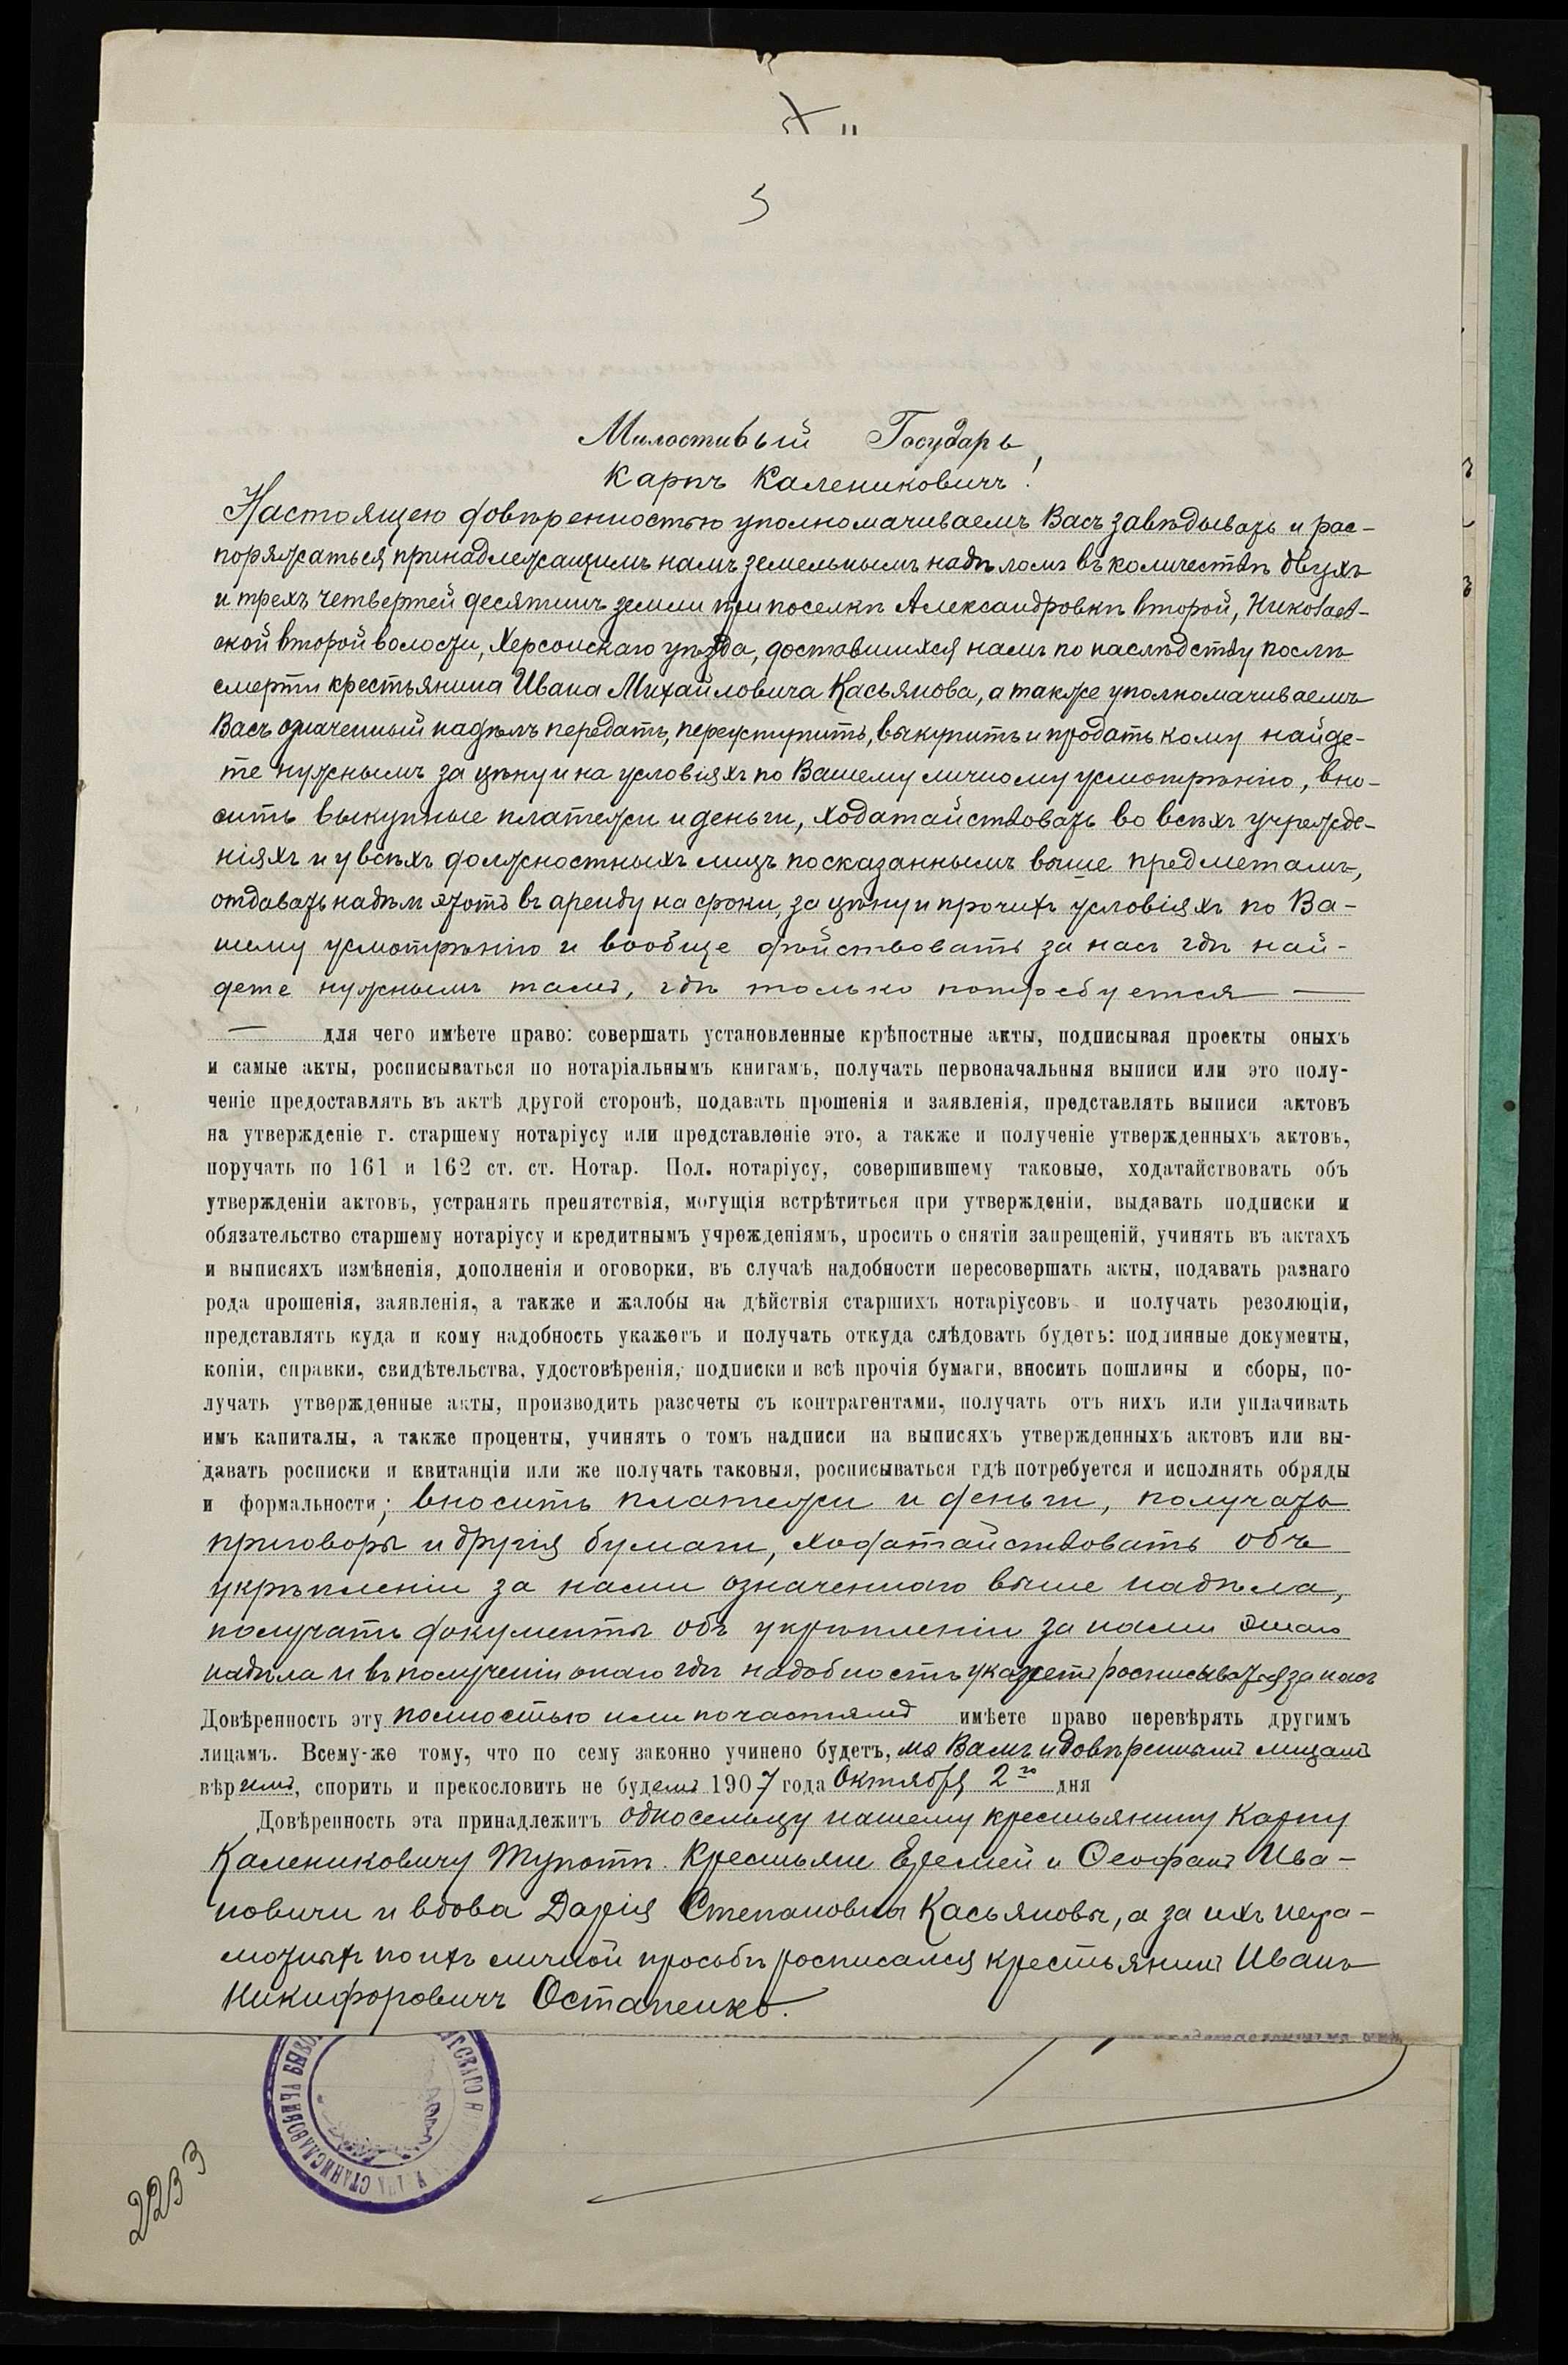 3
Милостивый Государь,
Карпъ Калениковичъ!
Настоящею довѣренностью уполномачиваемъ Васъ завѣдывать и рас-
поряжаться принадлежащимъ намъ земельнымъ надѣломъ въ количествѣ двухъ
и трехъ четвертей десятинъ земли при поселкѣ Александровкѣ второй, Николаев-
ской второй волости, Херсонскаго уѣзда, доставшихся намъ по наслѣдству послѣ
смерти крестьянина Ивана Михайловича Касьянова, а также уполномачиваемъ
Васъ означенный надѣлъ передать, переуступить, выкупить и продать кому найде-
те нужнымъ за цѣну и на условіяхъ по Вашему личному усмотрѣнію, вно-
сить выкупные платежи и деньги, ходатайствовать во всѣхъ учрежде-
ніяхъ и у всѣхъ должностныхъ лицъ по сказаннымъ выше предметамъ,
отдавать надѣлъ этотъ въ аренду на сроки, за цѣну и прочихъ условіяхъ по Ва-
шему усмотрѣнію и вообще дѣйствовать за насъ гдѣ най-
дете нужнымъ тамъ, гдѣ только потребуется —
— для чего имѣете право: совершать установленные крѣпостные акты, подписывая проекты оныхъ
и самые акты, росписываться по нотаріальнымъ книгамъ, получать первоначальныя выписи или это полу-
ченіе предоставлять въ актѣ другой сторонѣ, подавать прошенія и заявленія, представлять выписи актовъ
на утвержденіе г. старшему нотаріусу или представленіе это, а также и полученіе утвержденныхъ актовъ,
поручать по 161 и 162 ст. ст. Нотар. Пол. нотаріусу, совершившему таковые, ходатайствовать объ
утвержденіи актовъ, устранять препятствія, могущія встрѣтиться при утвержденіи, выдавать подписки и
обязательство старшему нотаріусу и кредитнымъ учрежденіямъ, просить о снятіи запрещеній, учинять въ актахъ
и выписяхъ измѣненія, дополненія и оговорки, въ случаѣ надобности пересовершать акты, подавать разнаго
рода прошенія, заявленія, а также и жалобы на дѣйствія старшихъ нотаріусовъ и получать резолюціи,
представлять куда и кому надобность укажетъ и получать откуда слѣдовать будетъ: подлинные документы,
копіи, справки, свидѣтельства, удостовѣренія, подписки и всѣ прочія бумаги, вносить пошлины и сборы, по-
лучать утвержденные акты, производить разсчеты съ контрагентами, получать отъ нихъ или уплачивать
имъ капиталы, а также проценты, учинять о томъ надписи на выписяхъ утвержденныхъ актовъ или вы-
давать росписки и квитанціи или же получать таковыя, росписываться гдѣ потребуется и исполнять обряды
и формальности; вносить платежи и деньги, получать
приговоры и другія бумаги, ходатайствовать объ
укрѣпленіи за нами означеннаго выше надѣла,
получать документы объ укрѣпленіи за нами этого
надѣла и въ полученіи онаго гдѣ надобность укажетъ росписываться за насъ
Довѣренность эту полностью или по частямъ имѣете право перевѣрять другимъ
лицамъ. Всему-же тому, что по сему законно учинено будетъ, мы Вамъ и довѣреннымъ лицамъ
вѣримъ, спорить и прекословить не будемъ 1907 года Октября 2го дня
Довѣренность эта принадлежитъ односельцу нашему крестьянину Карпу
Калениковичу Тупотѣ. Крестьяне Еремей и Ѳеофанъ Ива-
новичи и вдова Дарія Степановна Касьяновы, а за ихъ негра-
мотныхъ по ихъ личной просьбѣ росписался крестьянинъ Иванъ
Никифоровичъ Остапенко.
2233